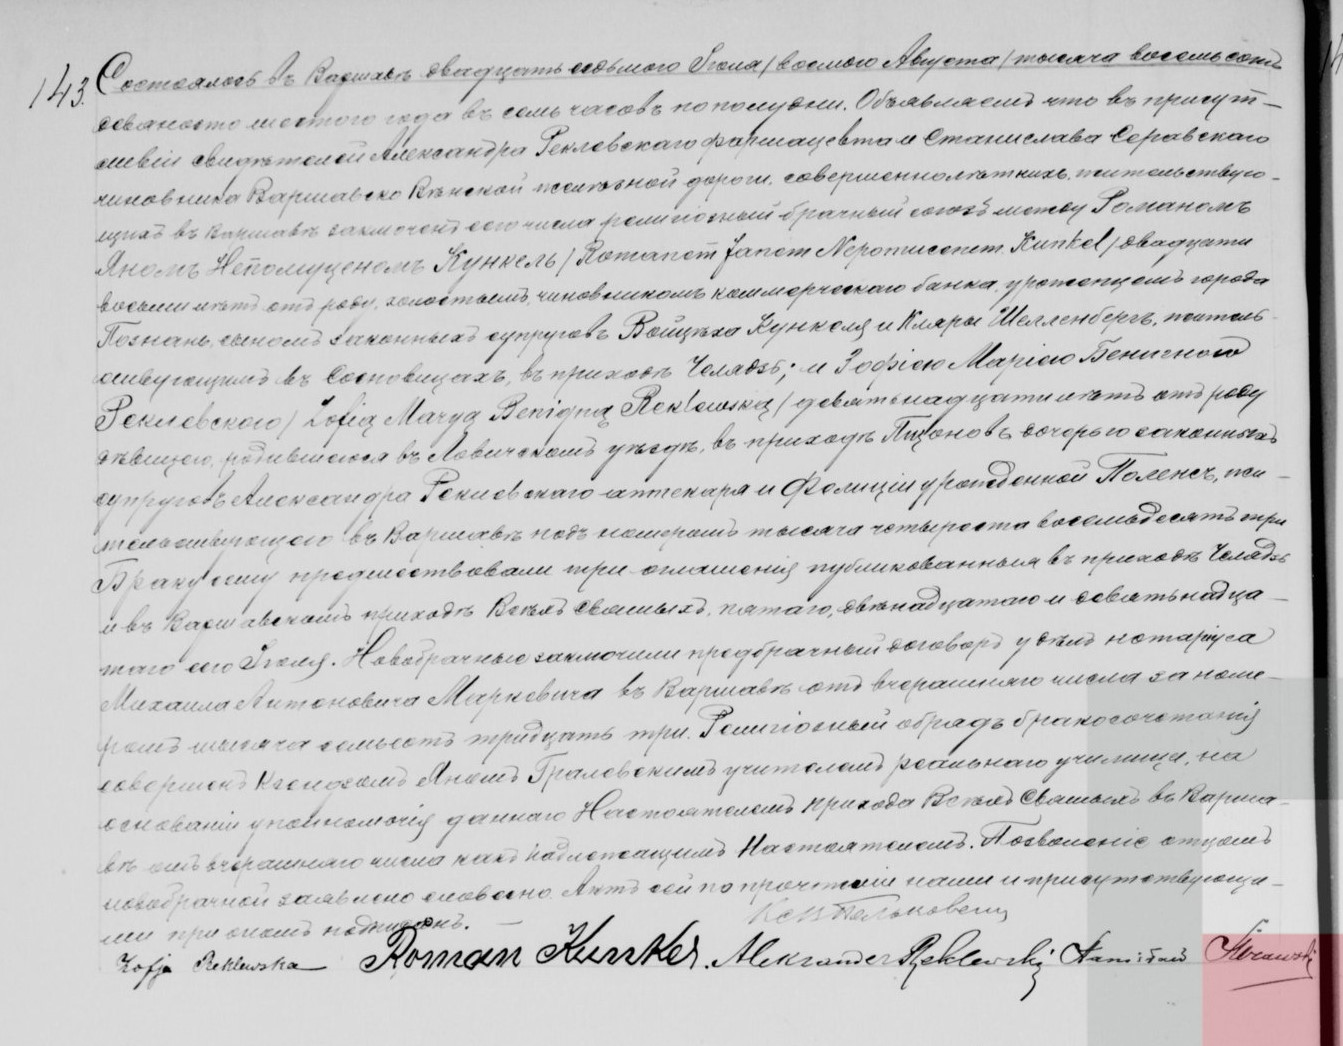 143.
Состоялось въ Варшавѣ двадцать седьмого Іюля /восьмого Августа/ тысяча восемьсотъ
девяносто шестого года въ семь часовъ пополудни. Объявляемъ что въ присут-
ствіи свидѣтелей Александра Реклевскаго фармацевта и Станислава Серавскаго
чиновника Варшавско Вѣнской желѣзной дороги, совершеннолѣтнихъ, жительствую-
щихъ въ Варшавѣ заключенъ сего числа религіозный брачный союзъ между Романомъ
Яномъ Непомуценомъ Кункель /Romanem Janem Nepomucenem Kunkel/ двадцати
восьми лѣтъ отъ роду, холостымъ, чиновникомъ коммерческаго банка, уроженцемъ города
Познань, сыномъ законныхъ супруговъ Войцѣха Кункеля и Клары Шелленбергъ, житель-
ствующимъ въ Сосновицахъ, въ приходѣ Челядзь; и Зофіею Маріею Бенигною
Реклевскою / Zofią Maryą Benigną Reklewską / девятнадцати лѣтъ отъ роду
дѣвицею, родившеюся въ Ловичскомъ уѣздѣ, въ приходѣ дочерью законныхъ
супруговъ Александра Реклевскаго аптекаря и Фелиціи урожденной Поленсъ, жи-
тельствующею въ Варшавѣ подъ номеромъ тысяча четыреста восемьдесятъ три
Браку сему предшествовали три оглашенія публикованныя въ приходѣ Челядзь
и въ Варшавскомъ приходѣ Всѣхъ Святыхъ, пятаго, двѣнадцатаго и девятнадца-
таго сего Іюля. Новобрачные заключили предбрачный договоръ у дѣлъ нотаріуса
Михаила Антоновича Маркевича въ Варшавѣ отъ вчерашняго числа за номе-
ромъ тысяча семьсотъ тридцать три. Религіозный обрядъ бракосочетанія
совершенъ Ксендзомъ Яномъ Граловскимъ учителемъ реальнаго училища, на
основаніи уполномочія даннаго Настоятелемъ прихода Всѣхъ Святыхъ въ Варша-
вѣ отъ вчерашняго числа какъ надлежащимъ Настоятелемъ. Позволеніе отцемъ
новобрачной заявлено словесно. Актъ сей по прочтеніи нами и присутствующи-
ми при ономъ подписанъ. —
Zofja Reklewska Roman Kunkel. Aleksander Reklewski Stanisław Sierawski